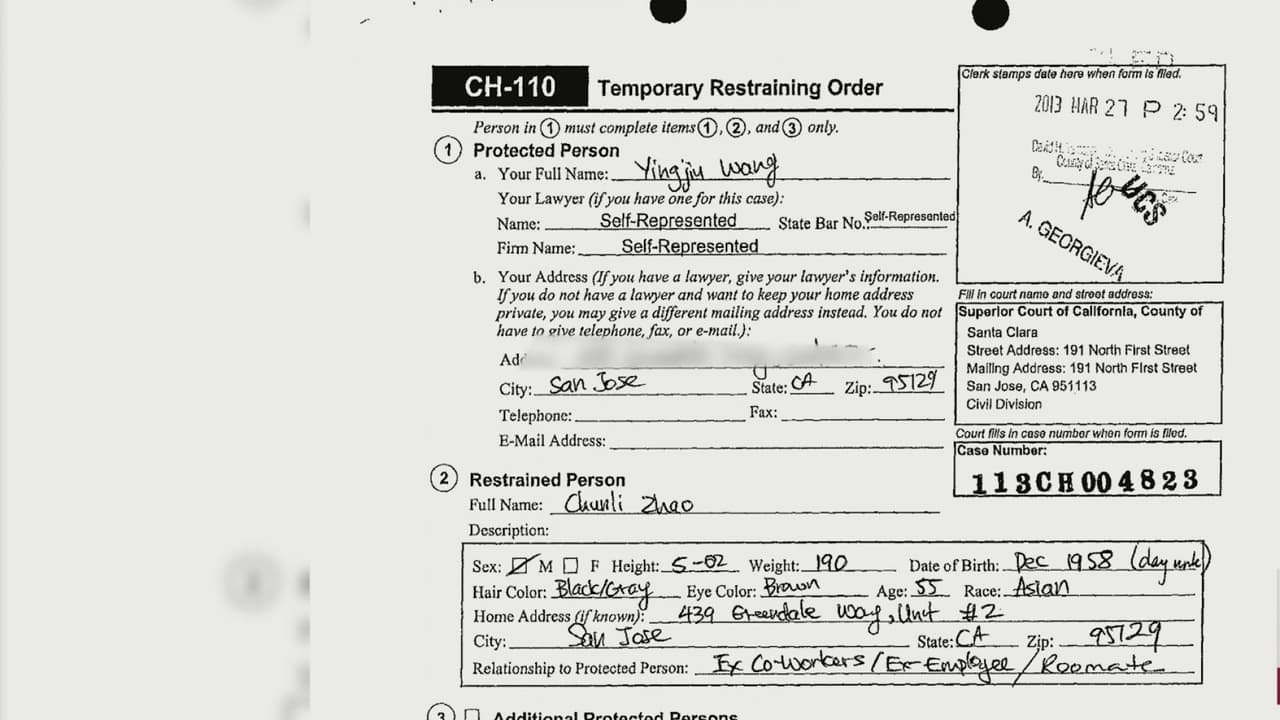 CH-110 Temporary Restraining Order
Clerk stamps date here when form is filed.
2013 MAR 27 P 2:59
By
UCS
A. GEORGIEVA
Person in ① must complete items ①, ②, and ③ only.
① Protected Person
a. Your Full Name: Yingjiu Wang
Your Lawyer (if you have one for this case):
Name: Self-Represented State Bar No.: Self-Represented
Firm Name: Self-Represented
b. Your Address (If you have a lawyer, give your lawyer's information.
If you do not have a lawyer and want to keep your home address
private, you may give a different mailing address instead. You do not
have to give telephone, fax, or e-mail.):
City: San Jose State: CA Zip: 95129
Telephone: Fax:
E-Mail Address:
Fill in court name and street address:
Superior Court of California, County of
Santa Clara
Street Address: 191 North First Street
Mailing Address: 191 North First Street
San Jose, CA 951113
Civil Division
Court fills in case number when form is filed.
Case Number:
113CH004823
② Restrained Person
Full Name: Chunli Zhao
Description:
Sex: M F Height: 5-02 Weight: 190 Date of Birth: Dec 1958 (day unk)
Hair Color: Black/Gray Eye Color: Brown Age: 55 Race: Asian
Home Address (if known): 439 Greendale Way, Unit #2
City: San Jose State: CA Zip: 95129
Relationship to Protected Person: Ex Co-Workers/Ex-Employee/Roomate
③ Additional Protected Persons